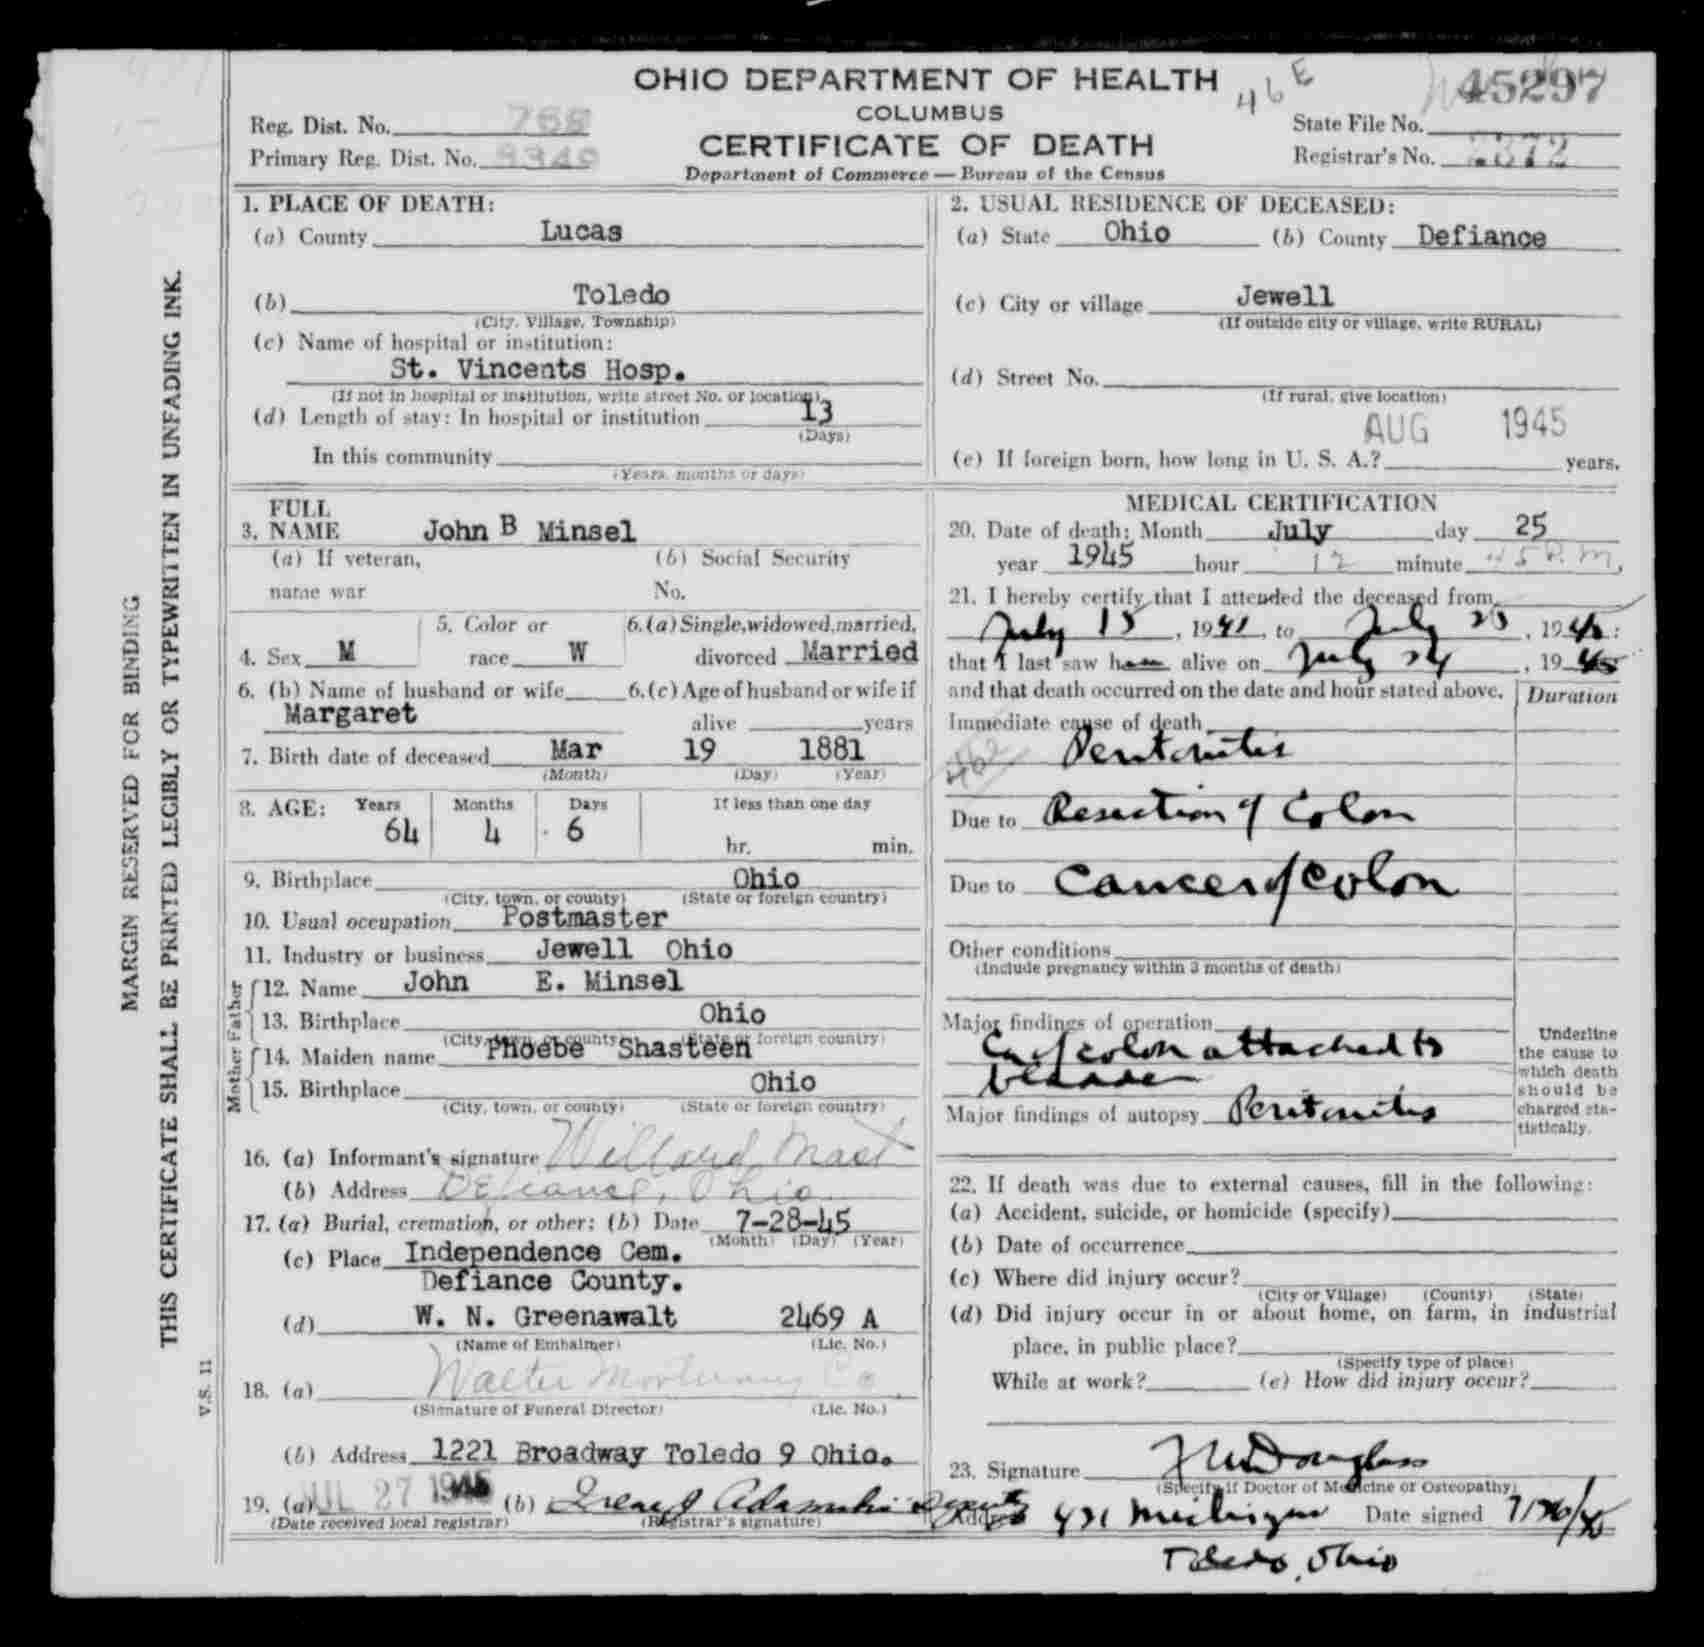 OHIO DEPARTMENT OF HEALTH
COLUMBUS
CERTIFICATE OF DEATH
Department of Commerce — Bureau of the Census
46E
45297
Reg. Dist. No. 768
Primary Reg. Dist. No.
State File No.
Registrar's No.
MARGIN RESERVED FOR BINDING
THIS CERTIFICATE SHALL BE PRINTED LEGIBLY OR TYPEWRITTEN IN UNFADING INK.
V.S. 11
1. PLACE OF DEATH:
(a) County Lucas
(b) Toledo
(City, Village, Township)
(c) Name of hospital or institution:
St. Vincents Hosp.
(If not in hospital or institution, write street No. or location)
(d) Length of stay: In hospital or institution 13
(Days)
In this community
(Years, months or days)
2. USUAL RESIDENCE OF DECEASED:
(a) State Ohio (b) County Defiance
(c) City or village Jewell
(If outside city or village, write RURAL)
(d) Street No.
(If rural, give location)
AUG 1945
(e) If foreign born, how long in U. S. A.? years.
3. FULL NAME John B Minsel
(a) If veteran, (b) Social Security
name war No.
4. Sex M 5. Color or race W 6. (a) Single, widowed, married, divorced Married
6. (b) Name of husband or wife 6. (c) Age of husband or wife if
Margaret alive years
7. Birth date of deceased Mar 19 1881
(Month) (Day) (Year)
8. AGE: Years Months Days If less than one day
64 4 6 hr. min.
9. Birthplace Ohio
(City, town, or county) (State or foreign country)
10. Usual occupation Postmaster
11. Industry or business Jewell Ohio
Father
12. Name John E. Minsel
13. Birthplace Ohio
(City, town, or county) (State or foreign country)
Mother
14. Maiden name Phoebe Shasteen
15. Birthplace Ohio
(City, town, or county) (State or foreign country)
16. (a) Informant's signature Willard Mast
(b) Address Defiance, Ohio
17. (a) Burial, cremation, or other; (b) Date 7-28-45
(Month) (Day) (Year)
(c) Place Independence Cem.
Defiance County.
(d) W. N. Greenawalt 2469 A
(Name of Embalmer) (Lic. No.)
18. (a) Walter Mortuary Co
(Signature of Funeral Director) (Lic. No.)
(b) Address 1221 Broadway Toledo 9 Ohio.
19. (a) JUL 27 1945 (b) Deputy
(Date received local registrar) (Registrar's signature)
MEDICAL CERTIFICATION
20. Date of death: Month July day 25
year 1945 hour 12 minute 45 P.M.
21. I hereby certify that I attended the deceased from
July , 19 , to July , 19 :
that I last saw h alive on July 24 , 19 45
and that death occurred on the date and hour stated above. Duration
Immediate cause of death
Peritonitis
Due to Resection of Colon
Due to Cancer of Colon
Other conditions
(Include pregnancy within 3 months of death)
Major findings of operation
Ca of colon attached to
bladder
Major findings of autopsy Peritonitis
Underline
the cause to
which death
should be
charged sta-
tistically.
22. If death was due to external causes, fill in the following:
(a) Accident, suicide, or homicide (specify)
(b) Date of occurrence
(c) Where did injury occur?
(City or Village) (County) (State)
(d) Did injury occur in or about home, on farm, in industrial
place, in public place?
(Specify type of place)
While at work? (e) How did injury occur?
23. Signature Douglass
(Specify if Doctor of Medicine or Osteopathy)
Address 421 Michigan Date signed 7/26/45
Toledo, Ohio